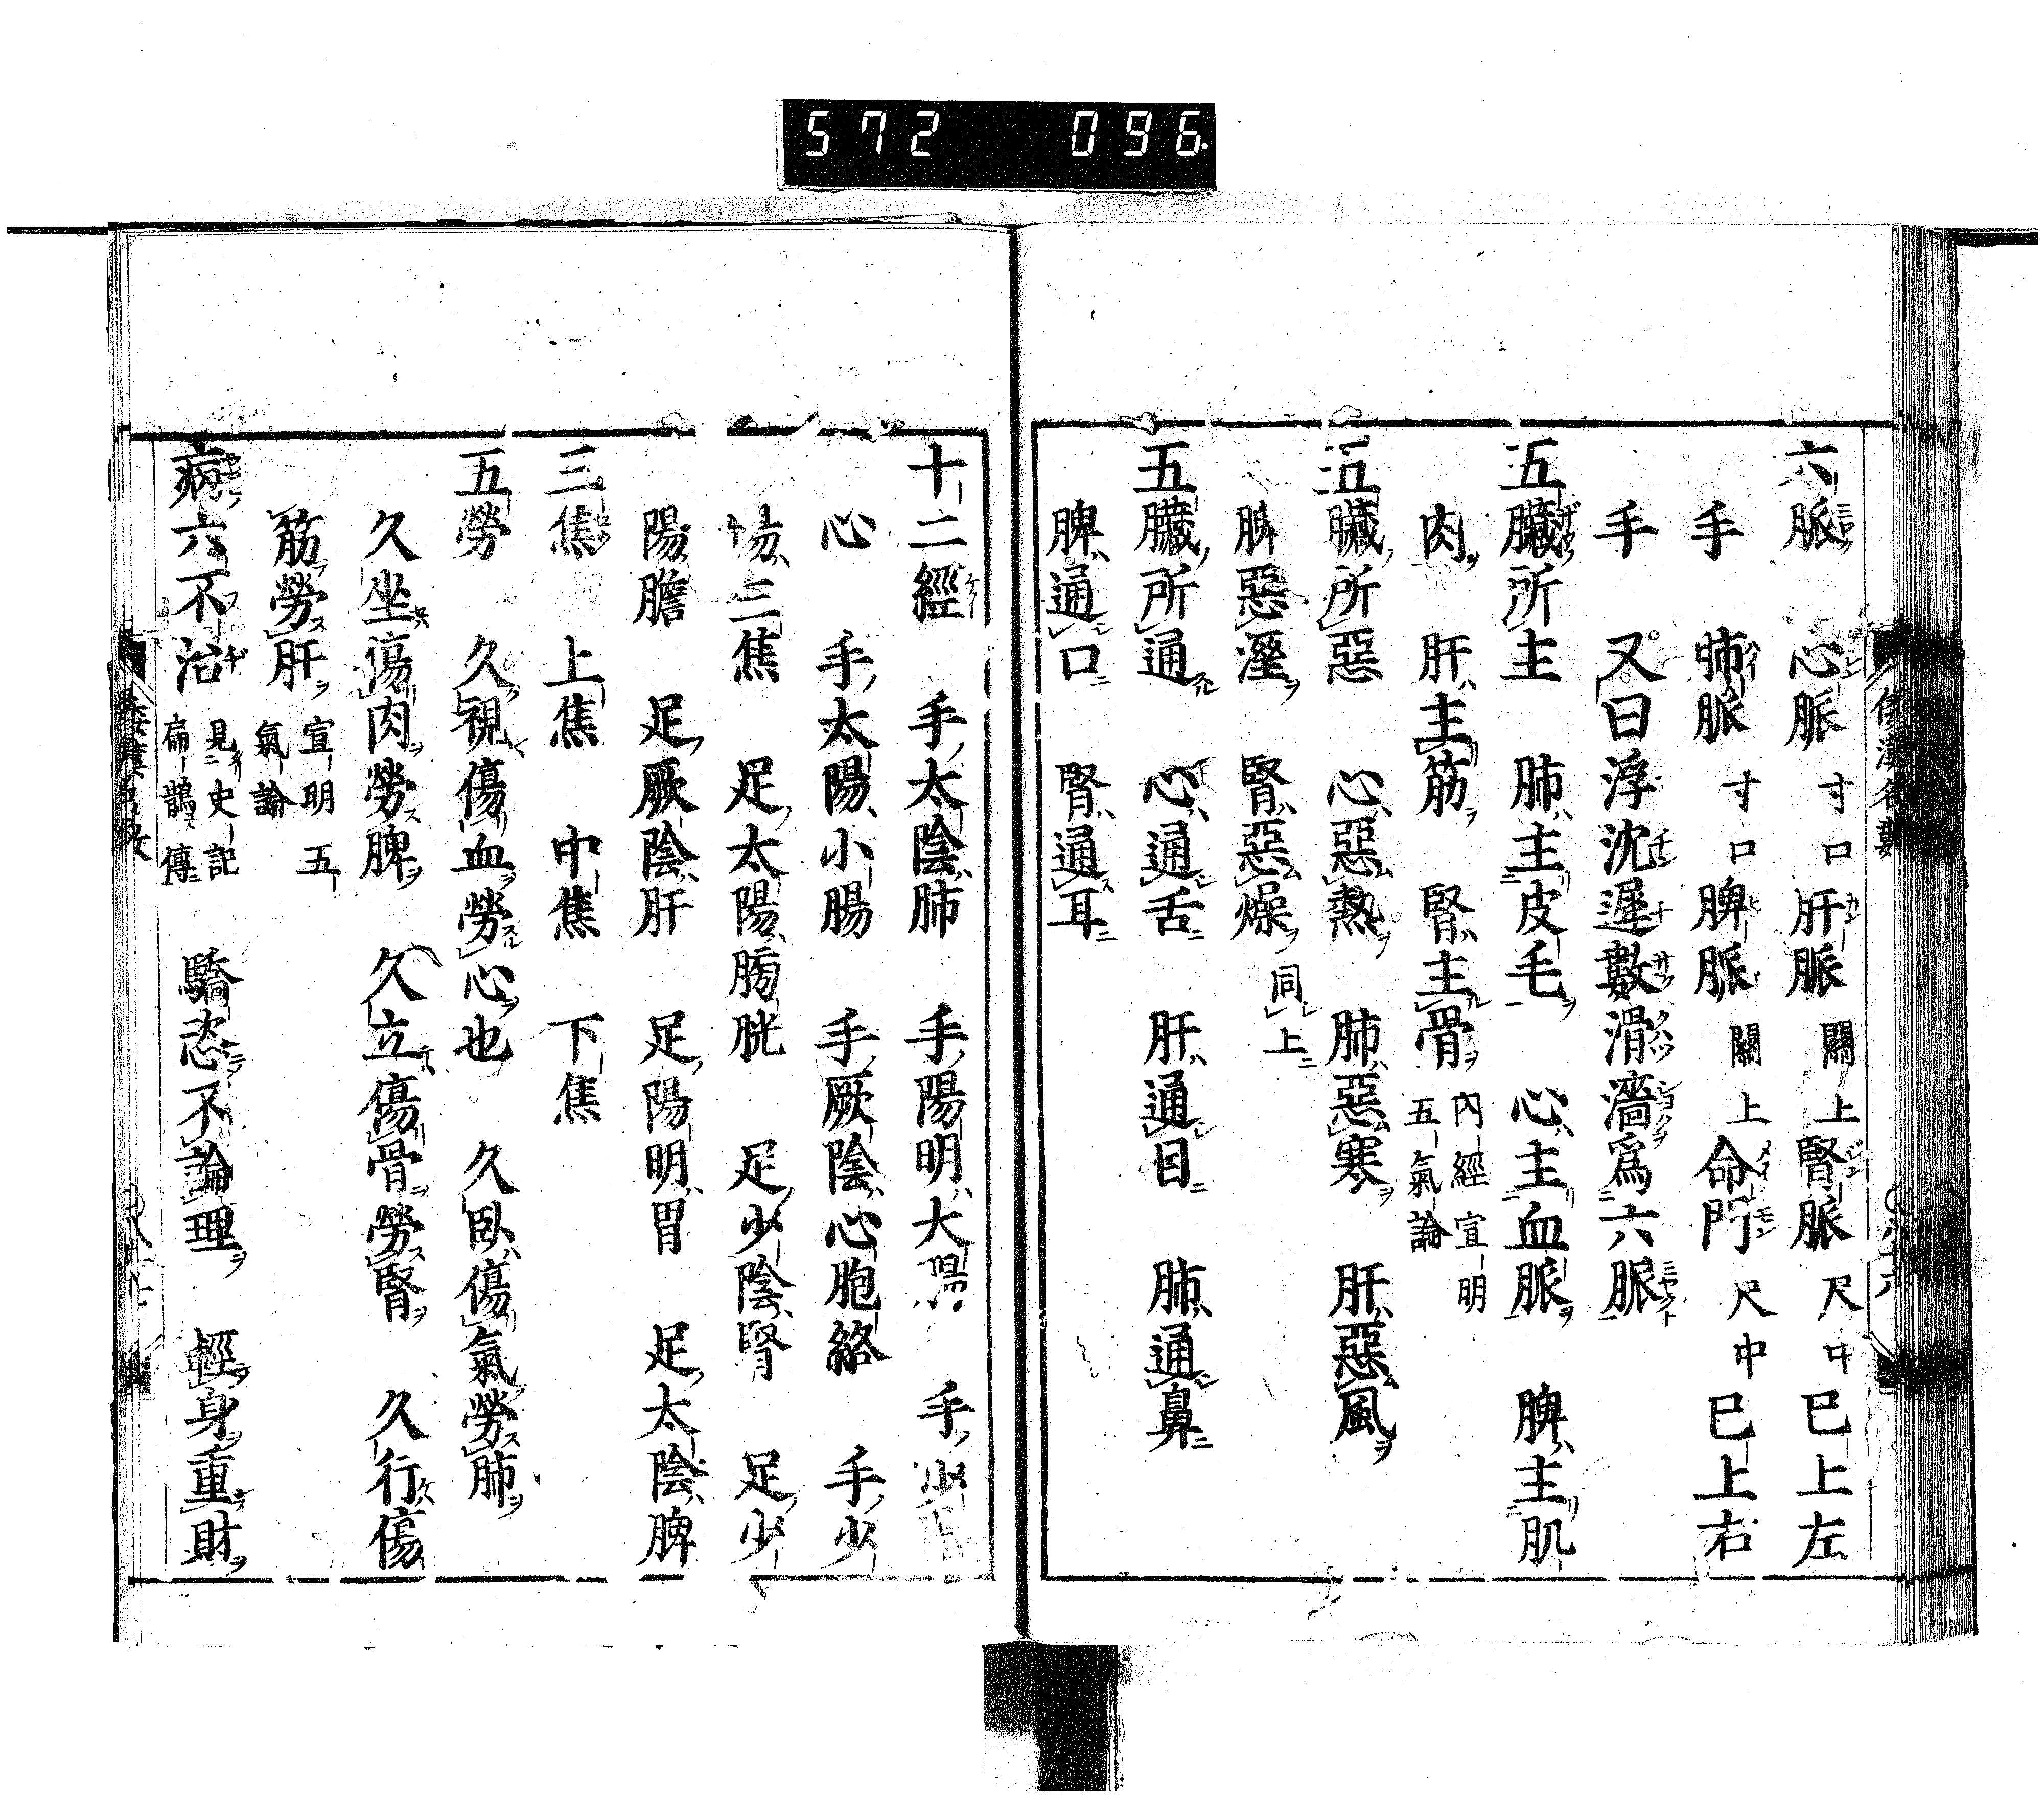 572 096
六脈 心脈寸口肝脈關上腎脈尺中已上左
手 肺脈寸口脾脈關上命門尺中已上右
手 又曰浮沈遲數滑濇爲六脈
五臟所主 肺主皮毛 心主血脈 脾主肌
肉 肝主筋 腎主骨內經宣明五氣論
五臟所惡 心惡熱 肺惡寒 肝惡風
脾惡溼 腎惡燥同上
五臟所通 心通舌 肝通目 肺通鼻
脾通口 腎通耳
十二經 手太陰肺 手陽明大腸 手少陰
心 手太陽小腸 手厥陰心胞絡 手少
陽三焦 足太陽膀胱 足少陰腎 足少
陽膽 足厥陰肝 足陽明胃 足太陰脾
三焦 上焦 中焦 下焦
五勞 久視傷血勞心也 久臥傷氣勞肺
久坐傷肉勞脾 久立傷骨勞腎 久行傷
筋勞肝宣明五氣論
病六不治見史記扁鵲傳 驕恣不論理 輕身重財